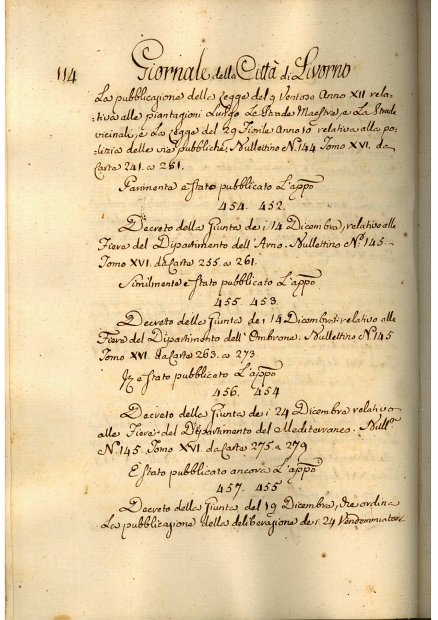 114 Giornale della Città di Livorno
La pubblicazione della Legge del 9 Ventoso Anno XII rela-
tiva alle piantagioni Lungo Le Strade Maestre, e La Strade
vicinale, e La Legge del 29 Fiorile Anno 10 relativa alla po-
lizia delle vie pubbliche; Bullettino N.144 Tomo XVI. da
Carta 241. a 261.
Parimente è stato pubblicato L'appo
454. 452.
Decreto della Giunta de i 14 Dicembra, relativo alle
Fiere del Dipartimento dell'Arno. Bullettino No. 145.
Tomo XVI. da Carte 255. a 261.
Similmente è stato pubblicato L'appo
455. 453.
Decreto della Giunta de i 14 Dicembre relativo alle
Fiere del Dipartimento dell'Ombrone. Bullettino No. 145
Tomo XVI. da Carte 263. a 273
Iz è stato pubblicato L'appo
456. 454
Decreto della Giunta de i 24 Dicembra relativo
alle Fiere del Dipartimento del Mediterraneo. Bullo
No. 145. Tomo XVI. da Carte 275. a 279
È stato pubblicato ancora L'appo
457. 455
Decreto della Giunta del 19 Dicembra, che ordina
La pubblicazione della deliberazione de i 24 Vendemmiatore